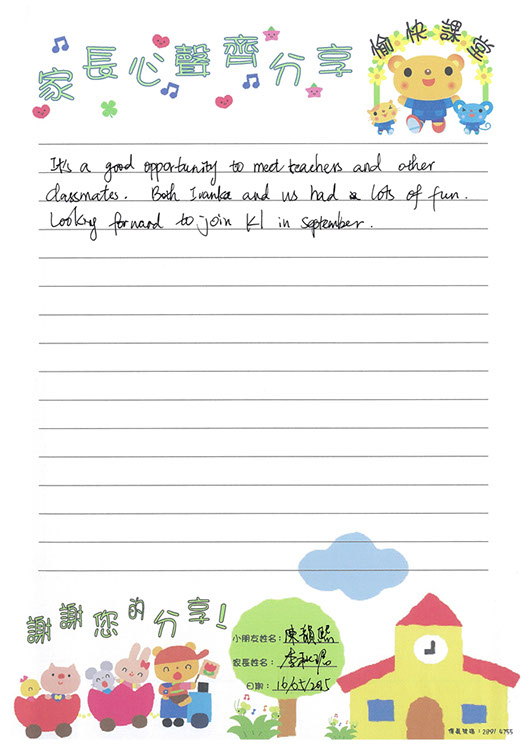 家長心聲齊分享
愉快課堂
It's a good opportunity to meet teachers and other
classmates. Both Ivanka and us had a lots of fun.
Looking forward to join K1 in September.
謝謝您的分享!
小朋友姓名:陳
家長姓名:李
日期:16/05/2015
傳真號碼:2891 4755